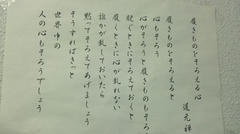 履きものをそろえる心
道元禅
履きものをそろえると
心もそろう
心がそろうと履きものもそろう
脱ぐときにそろえておくと
履くときに心が乱れない
誰かが乱しておいたら
黙ってそろえてあげましょう
そうすればきっと
世界中の
人の心もそろうでしょう